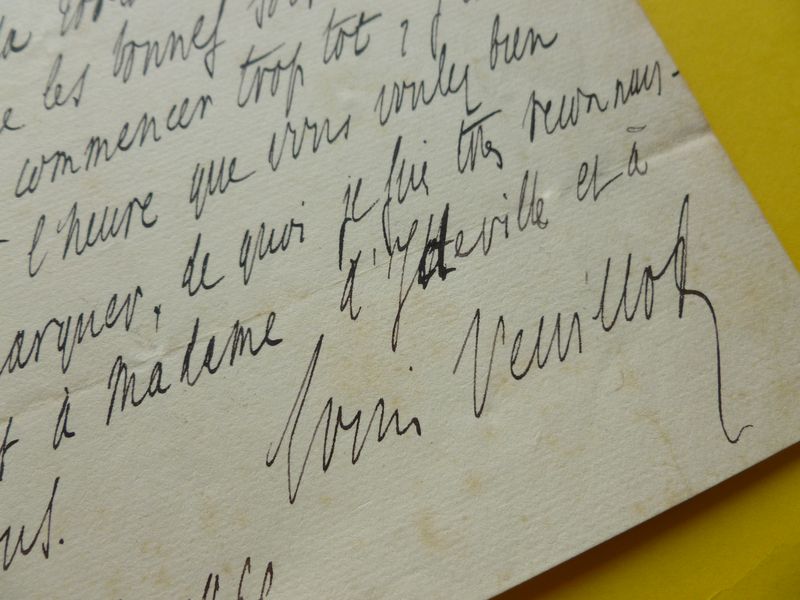 les bonnes
commencer trop tôt ?
l'heure que vous voulez bien
arquer, de quoi je suis très reconnais-
à madame d'Ytteville et à
us.
Louis Veuillot